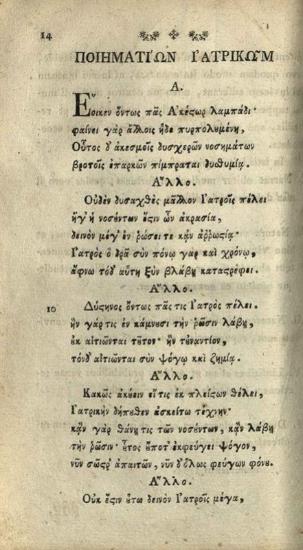 14
ΠΟΙΗΜΑΤΙΟΝ ΙΑΤΡΙΚΟΝ
Α.
Ἔοικεν ὄντως πᾶς Ἀκέςωρ λαμπάδι·
φαίνει γὰρ ἄλλοις ἥδε πυρπολυμένη,
Οὗτος δ' ἀκεσμοῖς δυσχερῶν νοσημάτων
βροτοῖς ἐπαρκῶν πίμπραται δυσθυμίᾳ.
Ἄλλο.
Οὐδὲν δυσαχθὲς μᾶλλον Ἰατροῖς πέλει
ἢ ἡ νοσέντων ἐςὶν ὧν ἀκρασία,
δεινὸν μέγ' ἐν ῥώσει τε κᾂν ἀῤῥωςίᾳ·
Ἰατρὸς ὃ δρᾷ σὺν πόνῳ γὰρ καὶ χρόνῳ,
ἄφνω τόδ' αὕτη ξὺν βλάβῃ καταςρέφει.
Ἄλλο.
10 Δύςηνος ὄντως πᾶς τις Ἰατρὸς πέλει.
ἢν γάρ τις ἐν κάμνυσι τὴν ῥῶσιν λάβῃ,
ἐκ αἰτιῶνται τῦτον· ἢν τὐναντίον,
τόνδ' αἰτιῶνται σὺν ψόγῳ κκὶ ζημίᾳ.
Ἄλλο.
Κακῶς ἀκύειν εἴ τις ἐκ πλείςων θέλει,
Ἰατρικὴν δήπυθεν ἀσκείτω τέχνην·
κᾂν γὰρ θάνῃ τις τῶν νοσέντων, κᾂν λάβῃ
τὴν ῥῶσιν· ὗτος ὔποτ' ἐκφεύγει ψόγον,
νῦν σῶςρ' ἀπαιτῶν, νῦν δ' ὅλως φεύγων φόνυ.
Ἄλλο.
Οὐκ ἔςιν ὕτω δεινὸν Ἰατροῖς μέγα,